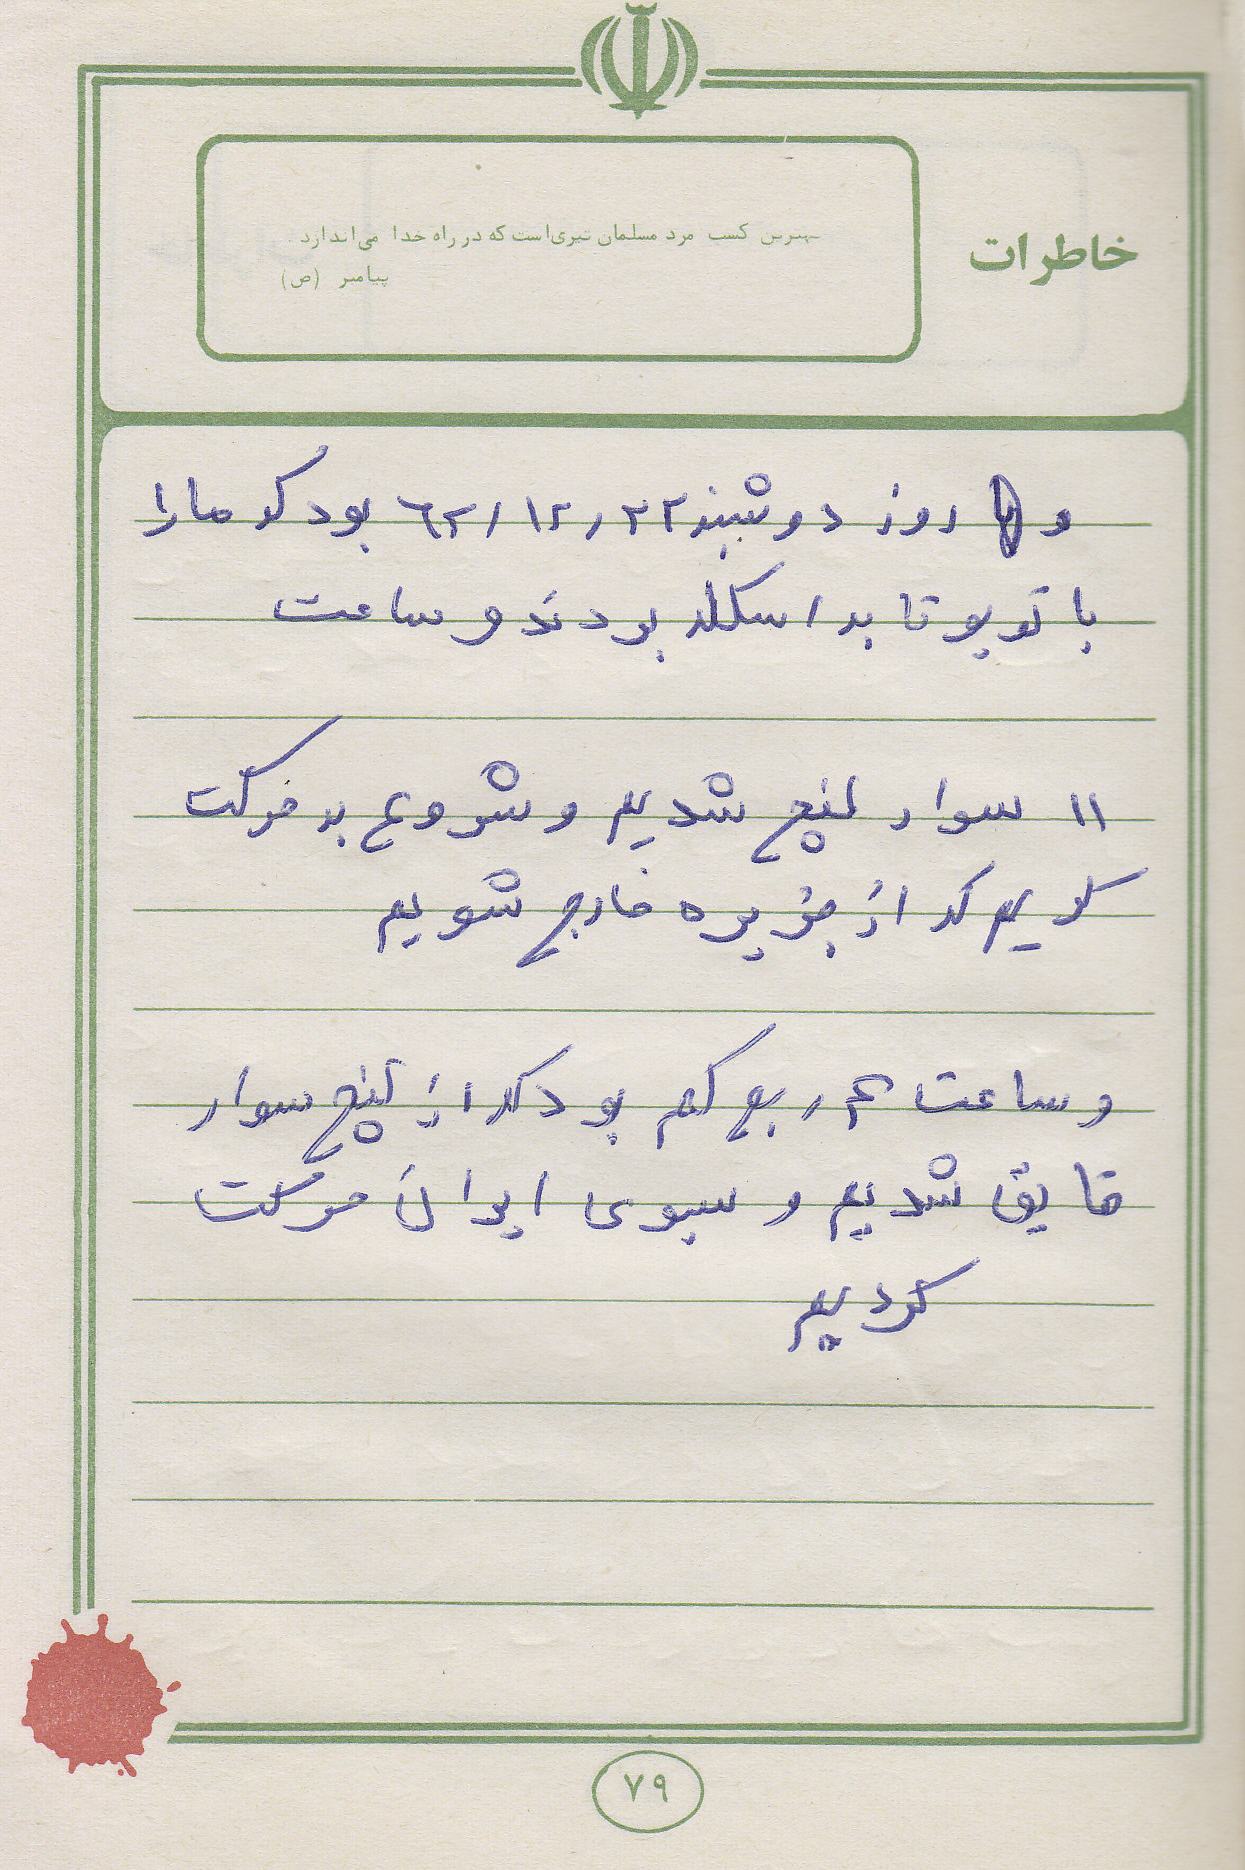 خاطرات
بهترین کسب مرد مسلمان تیری است که در راه خدا می‌اندازد
پیامبر (ص)
و روز دوشنبه ۶۲/۱۲/۲۲ بود که ما را
با تویوتا به اسکله بردند و ساعت
۱۱ سوار لنج شدیم و شروع به حرکت
کریم که از جزیره خارج شویم
و ساعت ربع کم بود که از لنج سوار
قایق شدیم و سوی ایران حرکت
کردیم
۷۹